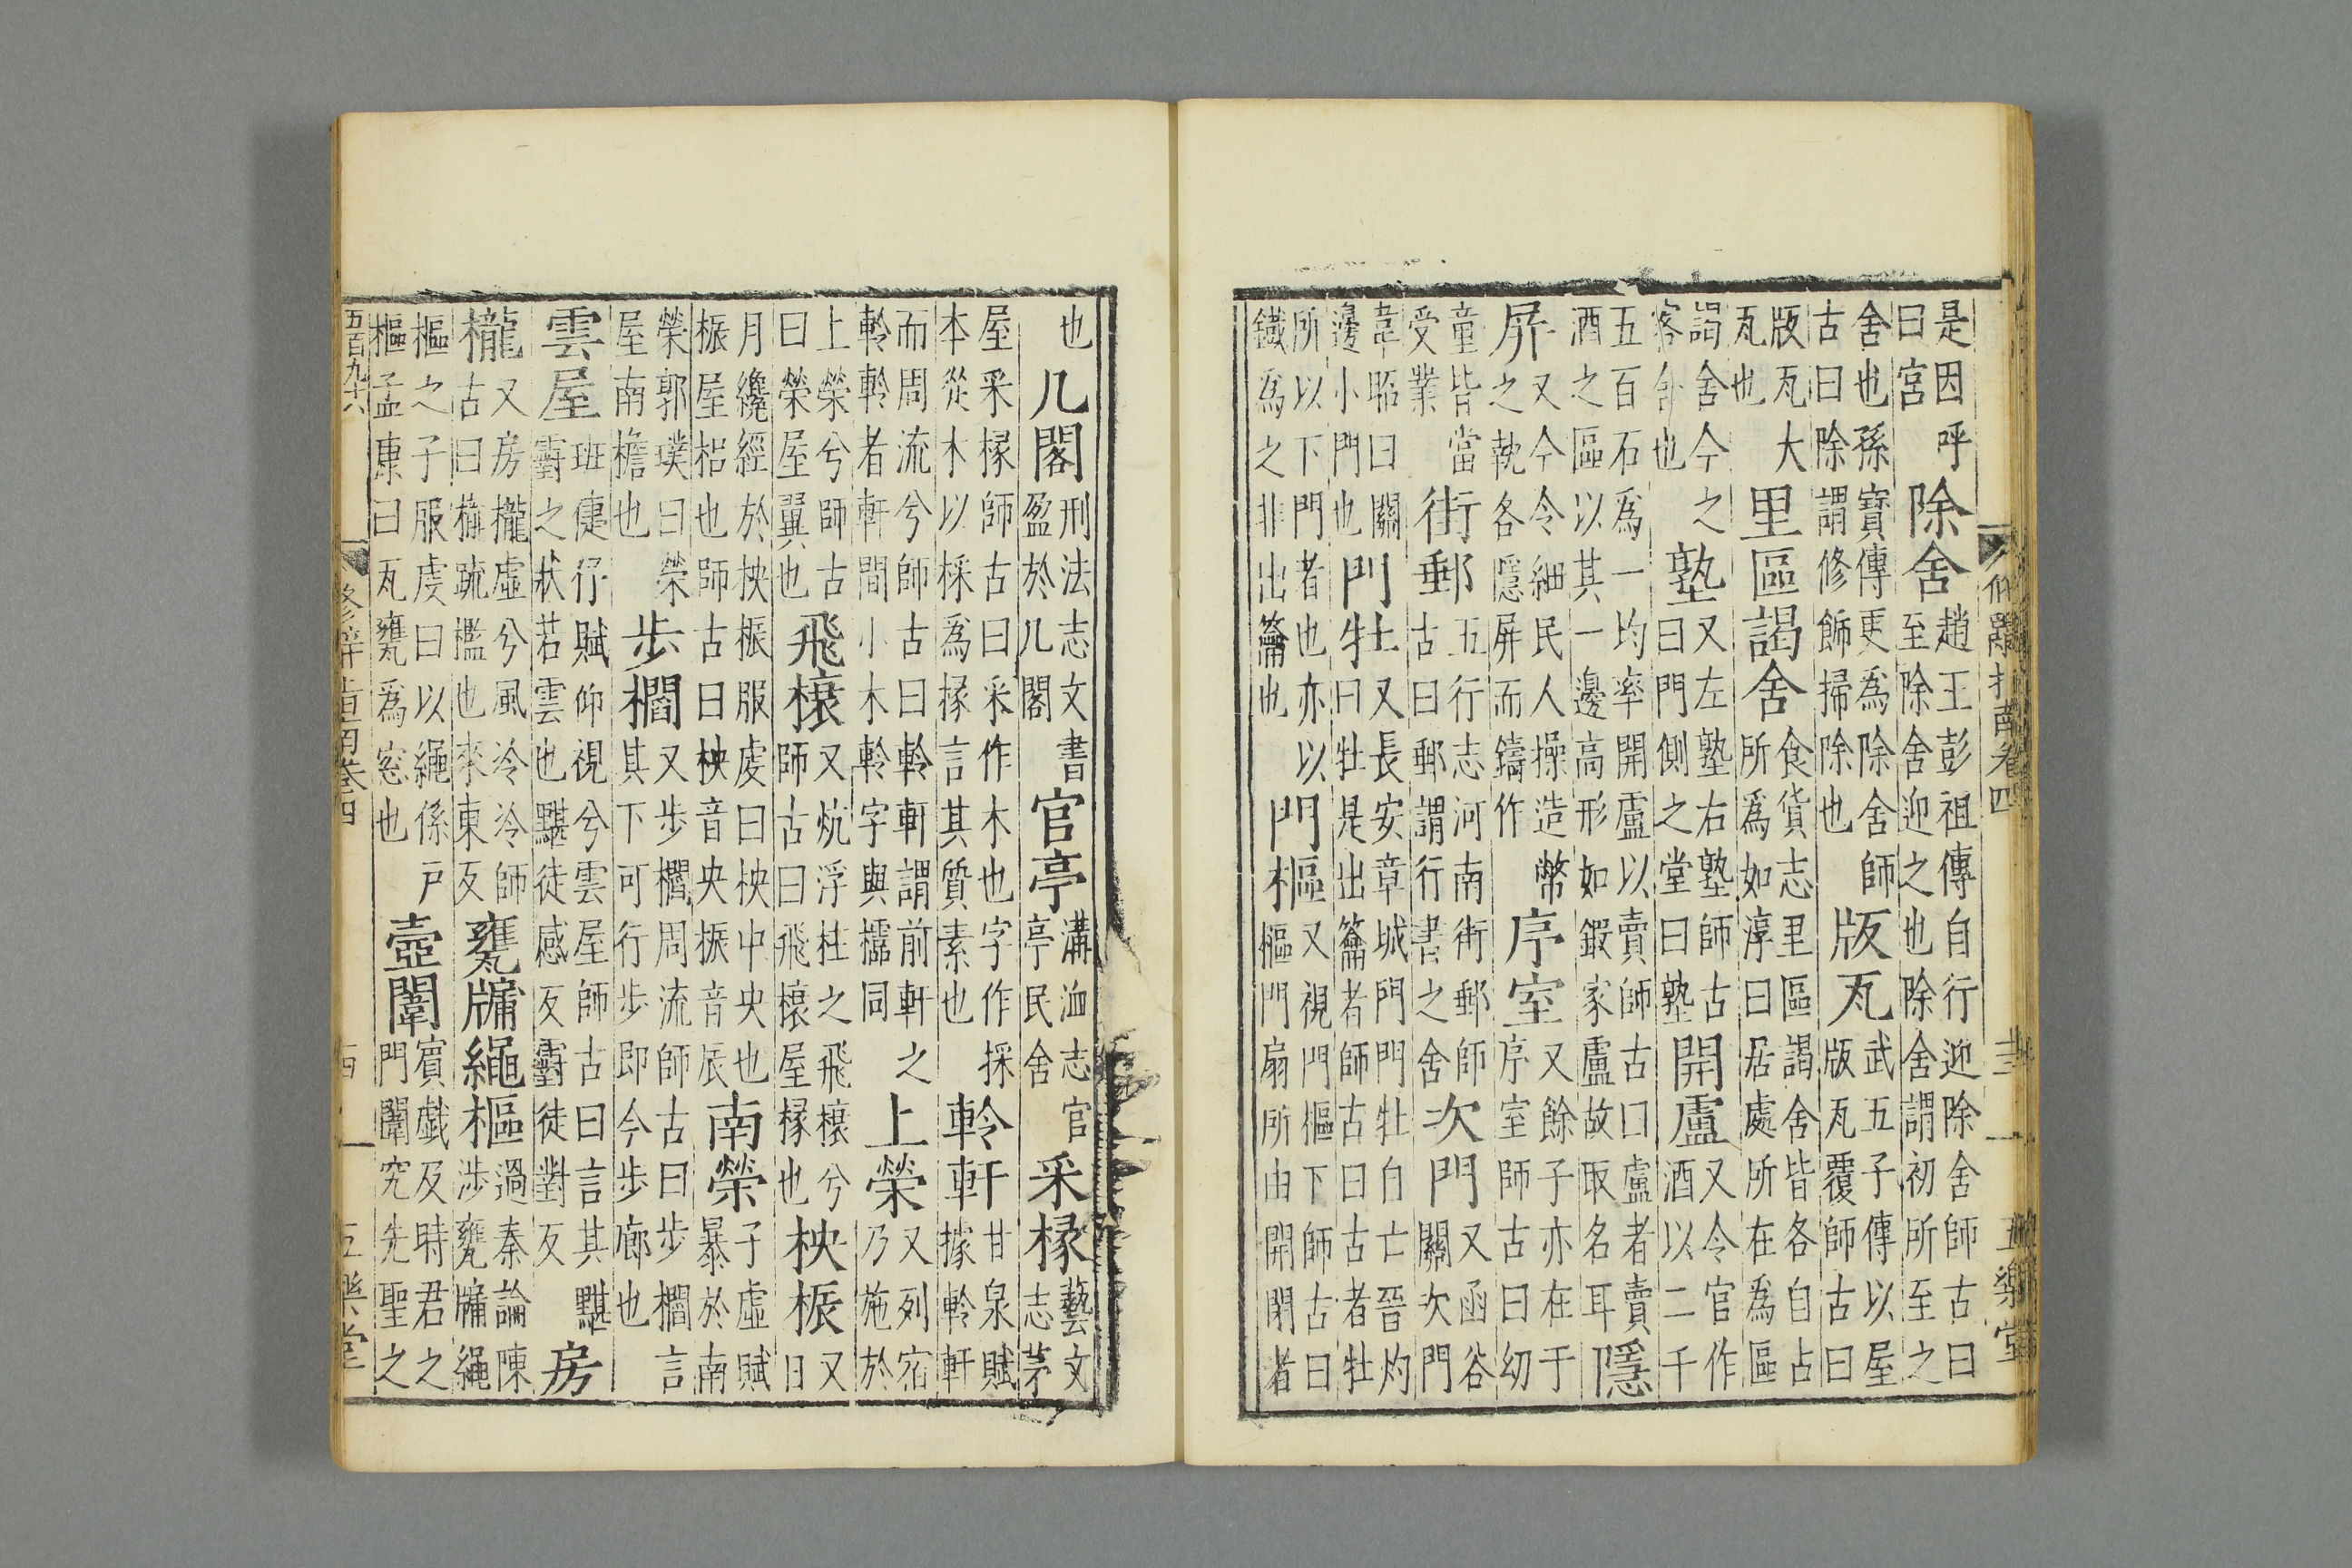 修辭指南卷四 廿三 五樂堂
是因呼曰宮除舍趙王彭祖傳自行迎除舍師古曰至除舍迎之也除舍謂初所至之
舍也孫寶傳更為除舍師古曰除謂修飾掃除也版瓦武五子傳以屋版瓦覆師古曰
版瓦大瓦也里區謁舍食貨志里區謁舍皆各自占所為如淳曰居處所在為區
謁舍今之客舍也塾又左塾右塾師古曰門側之堂曰塾開盧又令官作酒以二千
五百石為一均率開盧以賣師古曰盧者賣酒之區以其一邊高形如鍛家盧故取名耳隱
屏又今令細民人操造幣之執各隱屏而鑄作序室又餘子亦在于序室師古曰幼
童皆當受業街郵五行志河南街郵師古曰郵謂行書之舍次門又函谷關次門
韋昭曰關邊小門也門牡又長安章城門門牡自亡晉灼曰牡是出籥者師古曰古者牡
所以下門者也亦以鐵為之非出籥也門樞又視門樞下師古曰樞門扇所由開閉者
也几閣刑法志文書盈於几閣官亭溝洫志官亭民舍采椽藝文志茅
屋采椽師古曰采作木也字作採本從木以採為椽言其質素也軨軒甘泉賦據軨軒
而周流兮師古曰軨軒謂前軒之軨軨者軒間小木軨字與櫺同上榮又列宿乃施於
上榮兮師古曰榮屋翼也飛榱又炕浮柱之飛榱兮師古曰飛榱屋椽也柍桭又日
月纔經於柍桭服虔曰柍中央也桭屋梠也師古曰柍音央桭音辰南榮子虛賦暴於南
榮郭璞曰榮屋南檐也步櫩又步櫩周流師古曰步櫩言其下可行步即今步廊也
雲屋班倢伃賦仰視兮雲屋師古曰言其黮䨴之狀若雲也黮徒感反䨴徒對反房
櫳又房櫳虛兮風泠泠師古曰櫳疏檻也來東反甕牖繩樞過秦論陳涉甕牖繩
樞之子服虔曰以繩係戶樞孟康曰瓦甕為窓也壺闈賓戲及時君之門闈究先聖之
五百九十六 修辭指南卷四 五樂堂